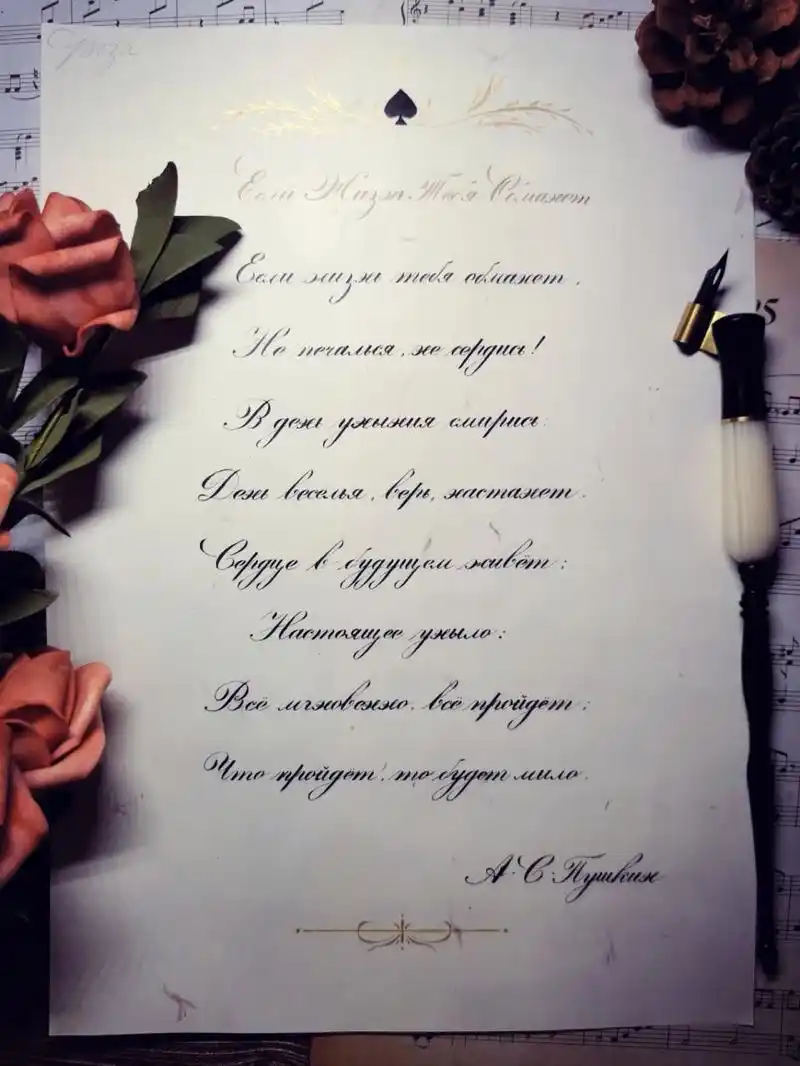 Если Жизнь Тебя Обманет
Если жизнь тебя обманет,
Не печалься, не сердись!
В день уныния смирись:
День веселья, верь, настанет.
Сердце в будущем живёт;
Настоящее уныло:
Всё мгновенно, всё пройдёт;
Что пройдёт, то будет мило.
А·С·Пушкин